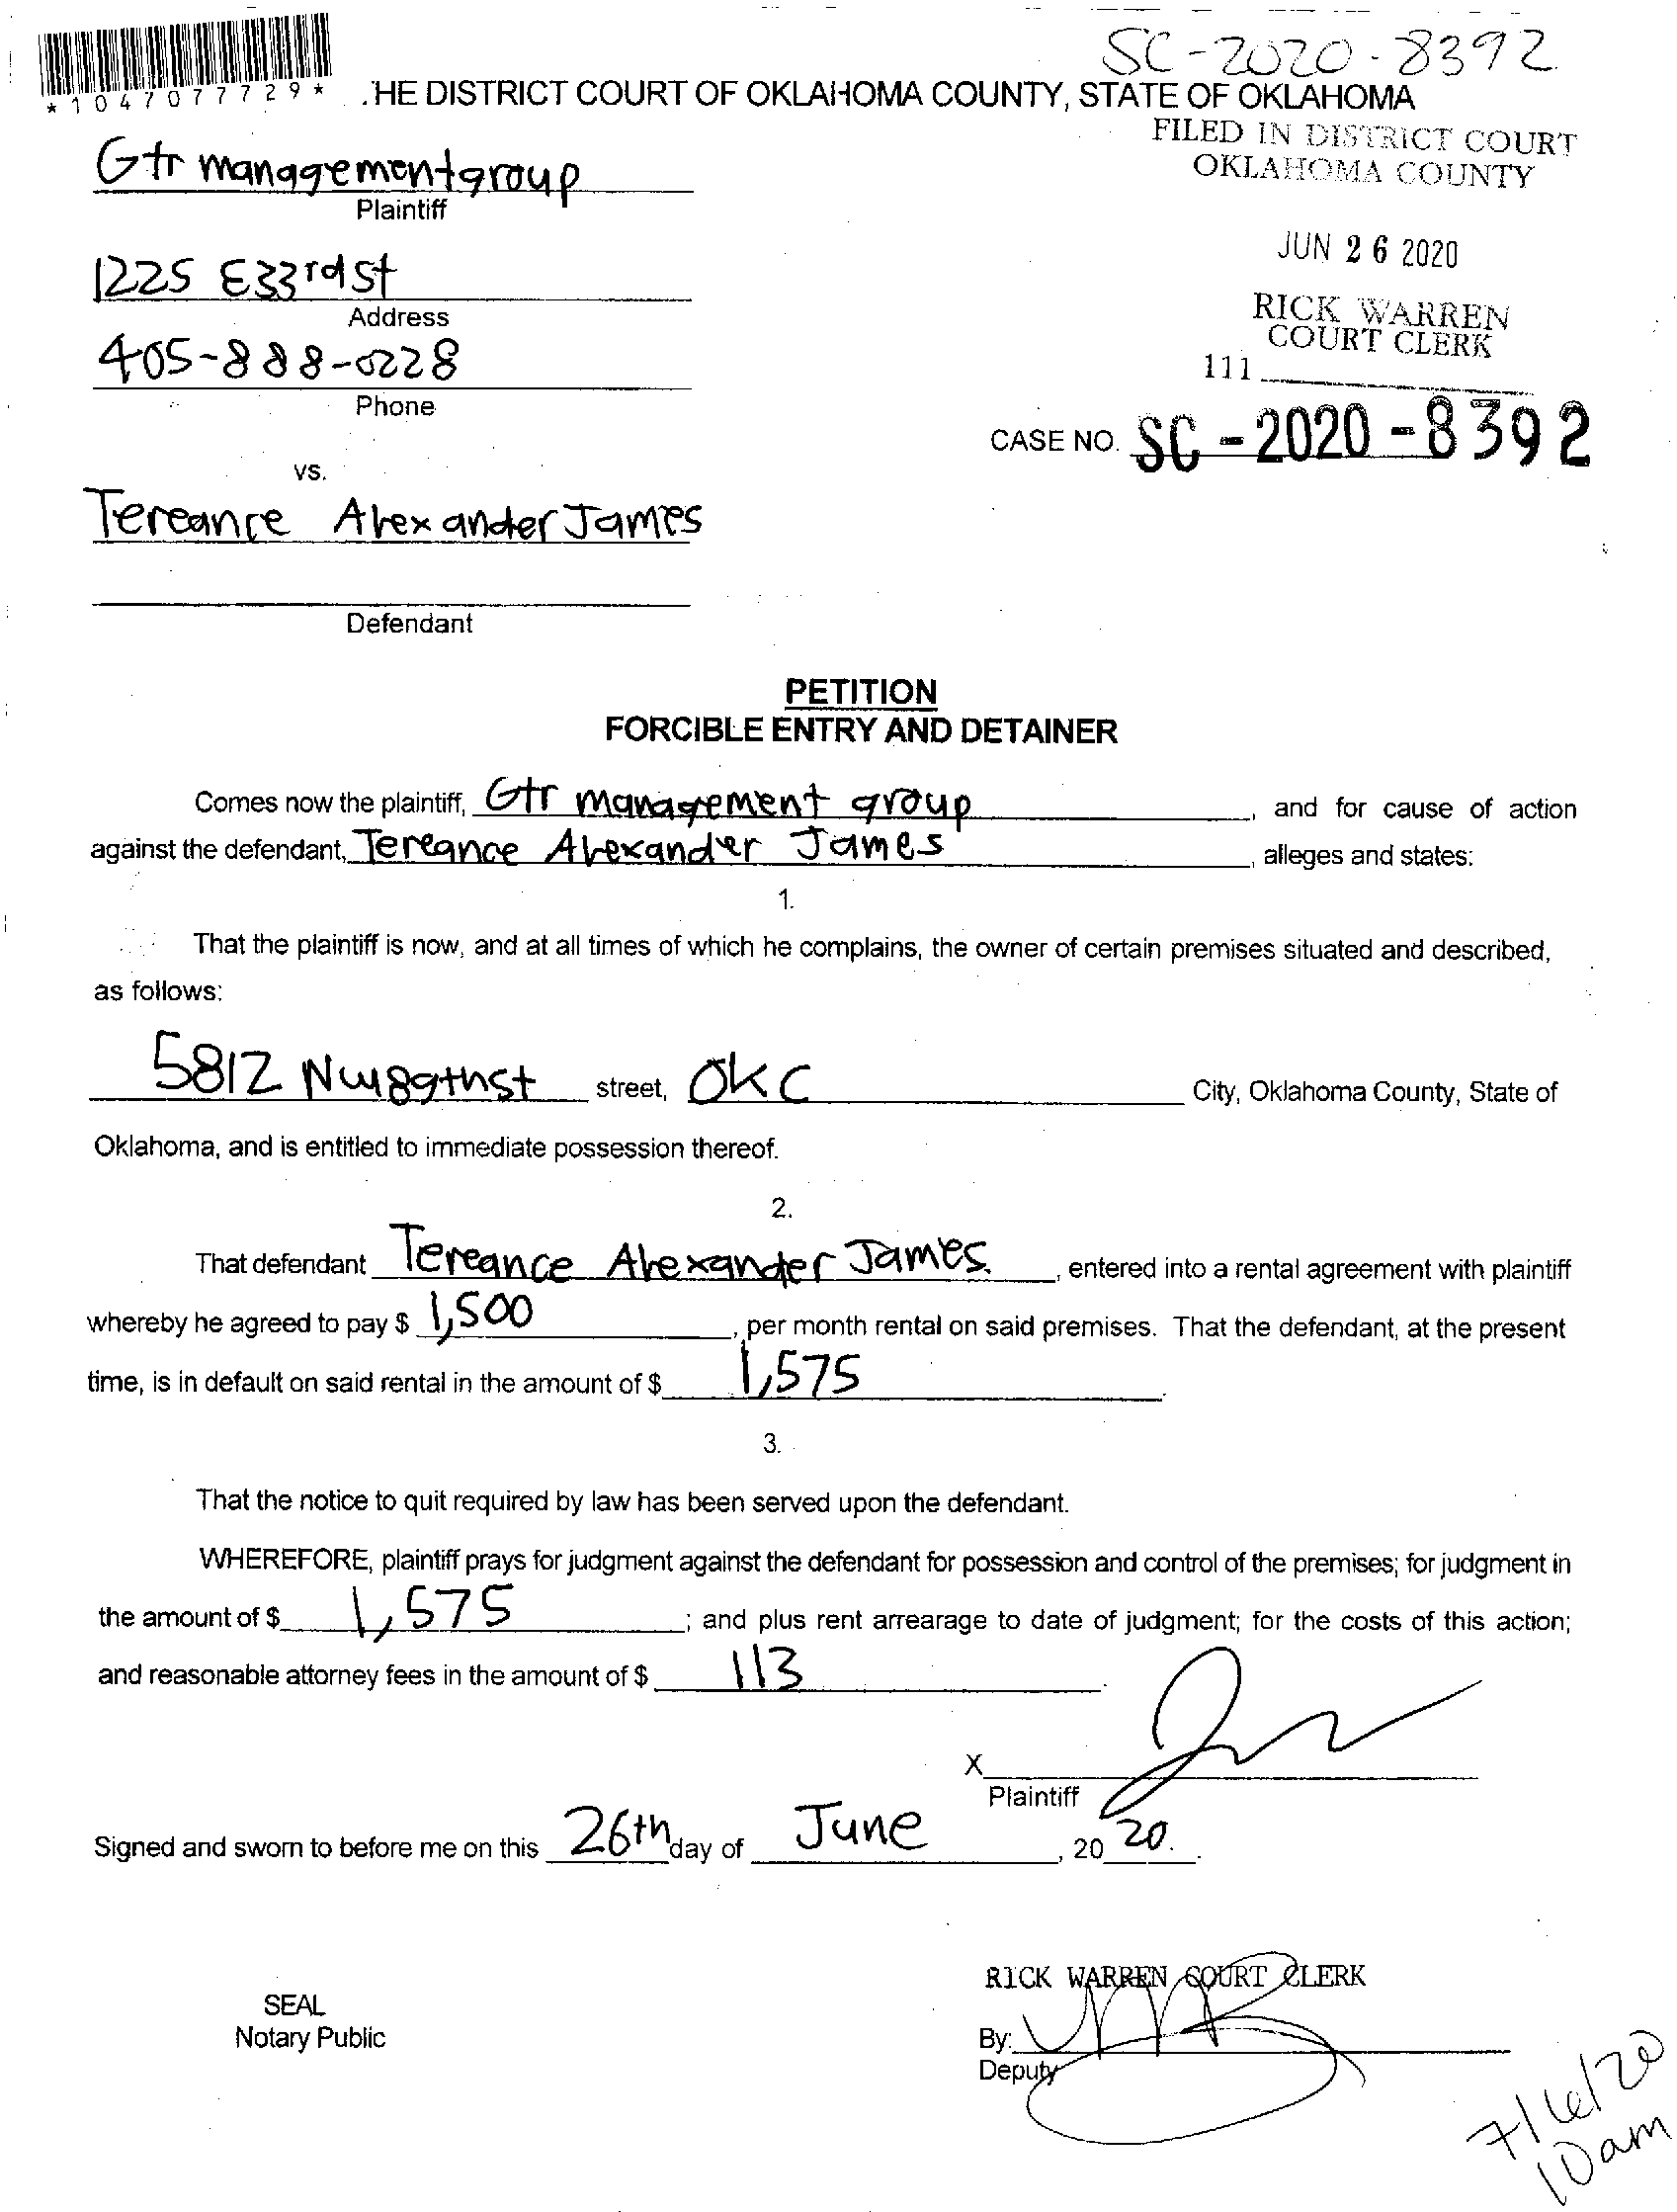 SC-2020-8392
*1047077729* .HE DISTRICT COURT OF OKLAHOMA COUNTY, STATE OF OKLAHOMA
FILED IN DISTRICT COURT
OKLAHOMA COUNTY
Gtr management group
Plaintiff
JUN 26 2020
1225 E33rd st
Address
RICK WARREN
COURT CLERK
111
405-888-0228
Phone
CASE NO. SC-2020-8392
vs.
Tereance Alexander James
Defendant
PETITION
FORCIBLE ENTRY AND DETAINER
Comes now the plaintiff, Gtr management group, and for cause of action
against the defendant, Tereance Alexander James, alleges and states:
1.
That the plaintiff is now, and at all times of which he complains, the owner of certain premises situated and described,
as follows:
5812 Nw89thst street, OKC City, Oklahoma County, State of
Oklahoma, and is entitled to immediate possession thereof.
2.
That defendant Tereance Alexander James., entered into a rental agreement with plaintiff
whereby he agreed to pay $ 1,500, per month rental on said premises. That the defendant, at the present
time, is in default on said rental in the amount of $ 1,575.
3.
That the notice to quit required by law has been served upon the defendant.
WHEREFORE, plaintiff prays for judgment against the defendant for possession and control of the premises; for judgment in
the amount of $ 1,575; and plus rent arrearage to date of judgment; for the costs of this action;
and reasonable attorney fees in the amount of $ 113.
X
Plaintiff
Signed and sworn to before me on this 26th day of June, 20 20.
RICK WARREN COURT CLERK
SEAL
Notary Public
By:
Deputy
7/6/20
10am